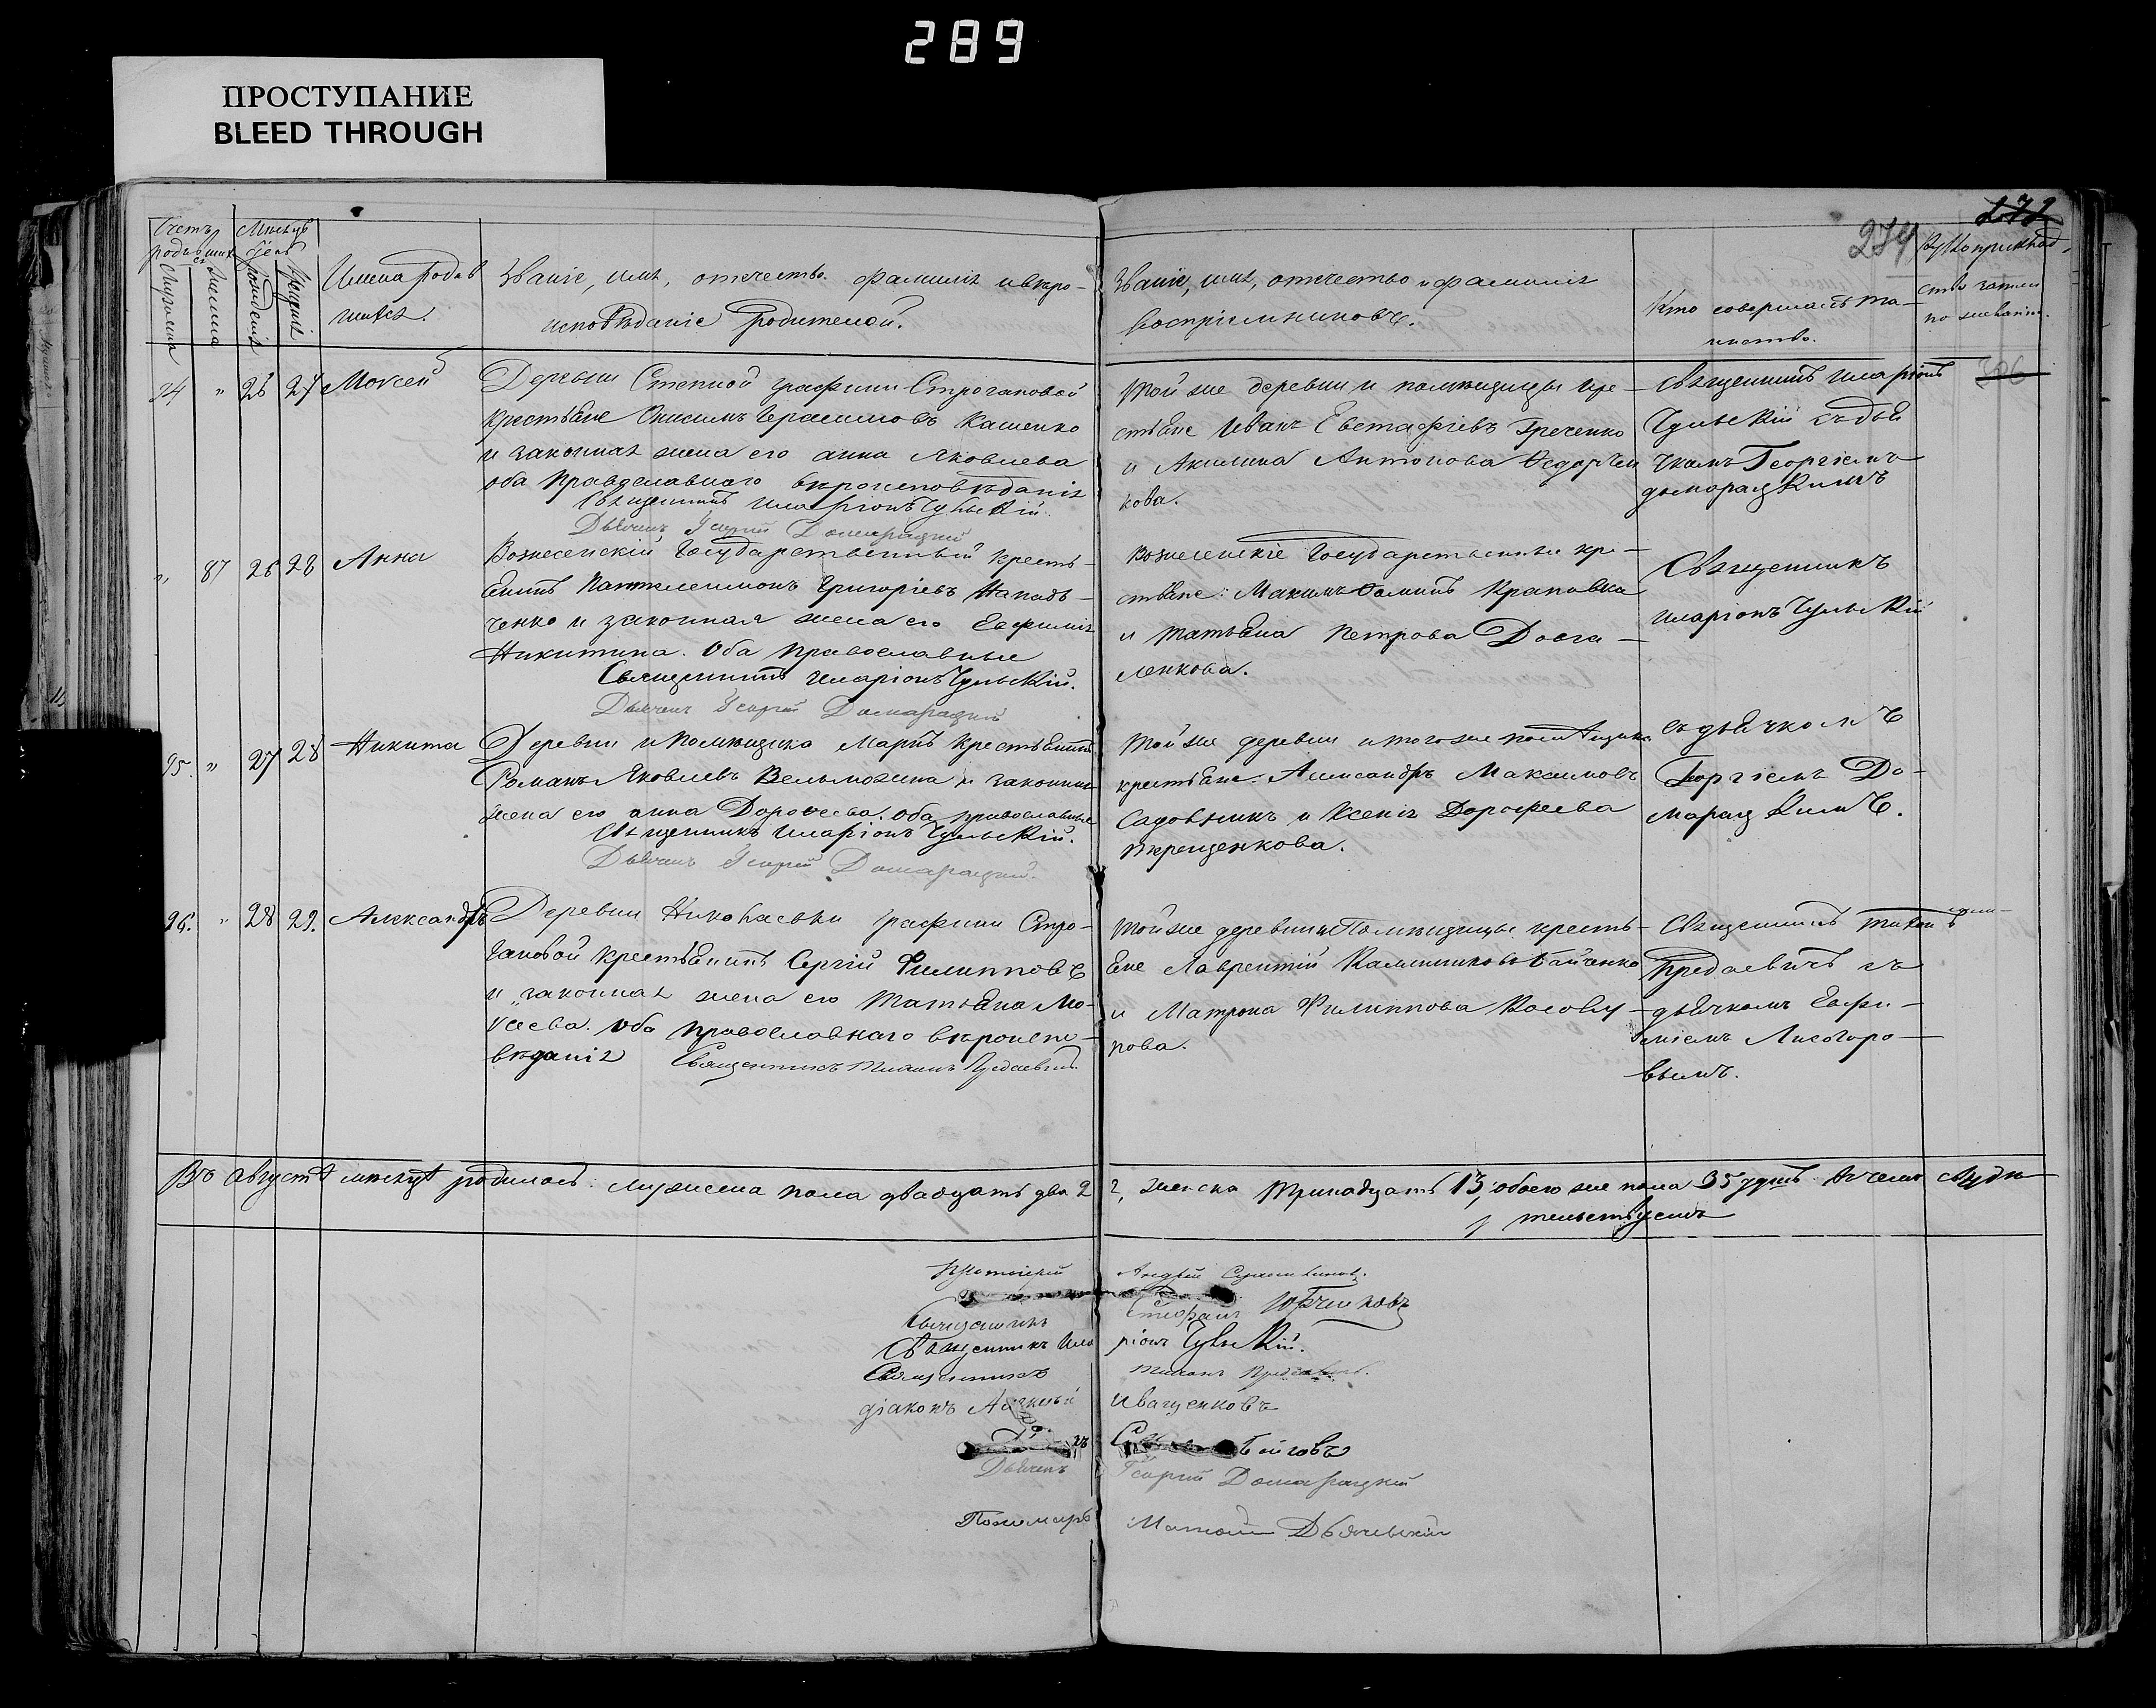 289
ПРОСТУПАНИЕ
BLEED THROUGH
274
272
Счетъ родившихся
Мужеска
Женска
Мѣсяцъ день
рожденія
крещенія
Имена родившихся.
Званіе, имя, отчество фамилія и вѣро-
исповѣданіе родителей.
Званіе, имя, отчество и фамилія
воспріемниковъ.
Кто совершалъ та-
инство.
Рукоприклад-
ство
по желанію.
94 " 26 27 Моисей
Деревни Степной графини Строгановой
крестьяне Онисимъ Герасимовъ Кашенко
и законная жена его Анна Яковлева
оба православнаго вѣроисповѣданія
Священникъ Иларіонъ Чульскій.
Дьячекъ Георгій Домарацкій
Той же деревни и помѣщицы кре-
стьяне Иванъ Евстафіевъ Греченко
и Акилина Антонова Федорчен
кова.
Священникъ Иларіонъ
Чульскій съ дья
чкомъ Георгіемъ
Домарацкимъ
" 87 26 28 Анна
Вознесенскій государственный кресть-
янинъ Пантелеимонъ Григоріевъ Нападъ-
ченко и законная жена его Евфимія
Никитина. Оба православные
Священникъ Иларіонъ Чульскій.
Дьячекъ Георгій Домарацкій
Вознесенскіе государственные кре-
стьяне: Максимъ Фоминъ Краповка
и Татьяна Петрова Довга-
ленкова.
Священникъ
Иларіонъ Чульскій
95. " 27 28 Никита
Деревни и помѣщика Маріъ крестьянинъ
Романъ Яковлевъ Вельможина и законная
жена его Анна Дороѳеева. Оба православные
Священникъ Иларіонъ Чульскій.
Дьячекъ Георгій Домарацкій.
Той же деревни и того же помѣщика
крестьяне Александръ Максимовъ
Садовникъ и Ксенія Дорофеева
Терещенкова.
съ дьячкомъ
Георгіемъ До-
марацкимъ.
96. " 28 29. Александръ
Деревни Николаевки графини Стро-
гановой крестьянинъ Сергій Филипповъ
и законная жена его Татьяна Мо-
исеева. Оба православнаго вѣроиспо-
вѣданія Священникъ Тихонъ
Той же деревни и помѣщицы кресть-
яне Лаврентій Калинниковъ Байченко
и Матрона Филиппова Косову-
рова.
Священникъ Тихонъ
съ
дьячкомъ Евфи-
міемъ Лисогоро-
вымъ.
Въ августѣ мѣсяцѣ родилось: мужеска пола двадцать два 22, женска тринадцать 13, обоего же пола 35 душъ. В чемъ свидѣ
тельствуемъ
Протоіерей Андрей
Священникъ Стефанъ
Священникъ Иларіонъ Чульскій.
Священникъ Тихонъ
діаконъ Алексѣй Иващенковъ
Дьячекъ Георгій Домарацкій
Пономарь